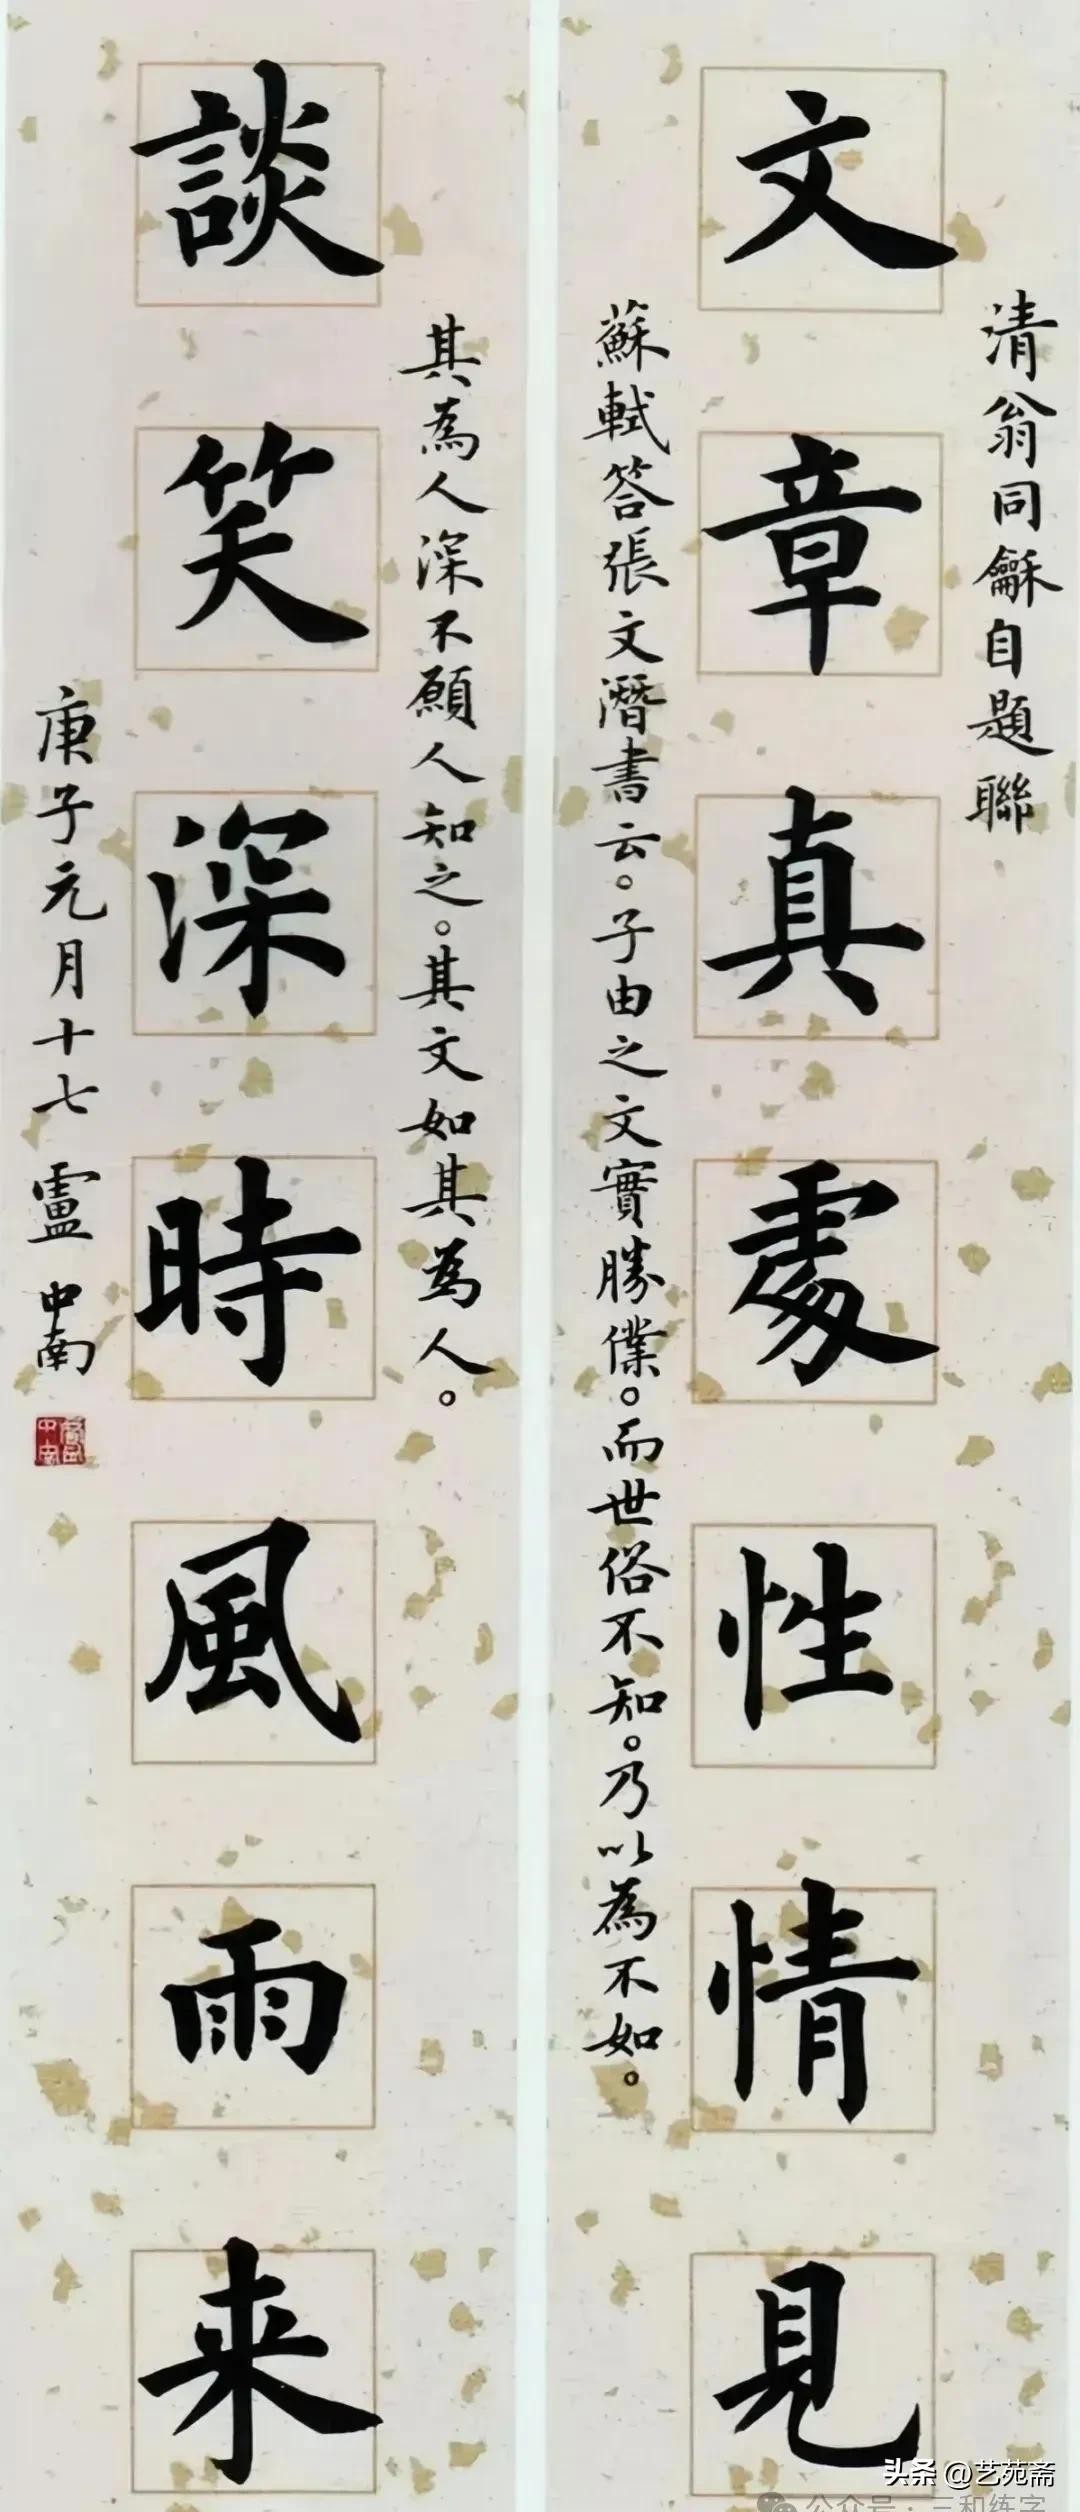 清翁同龢自題聯
文章真處性情見
蘇軾答張文潛書云。子由之文實勝僕。而世俗不知。乃以為不如。
其為人深不願人知之。其文如其為人。
談笑深時風雨来
庚子元月十七 盧中南
头条 @艺苑斋
公众号：三和练字